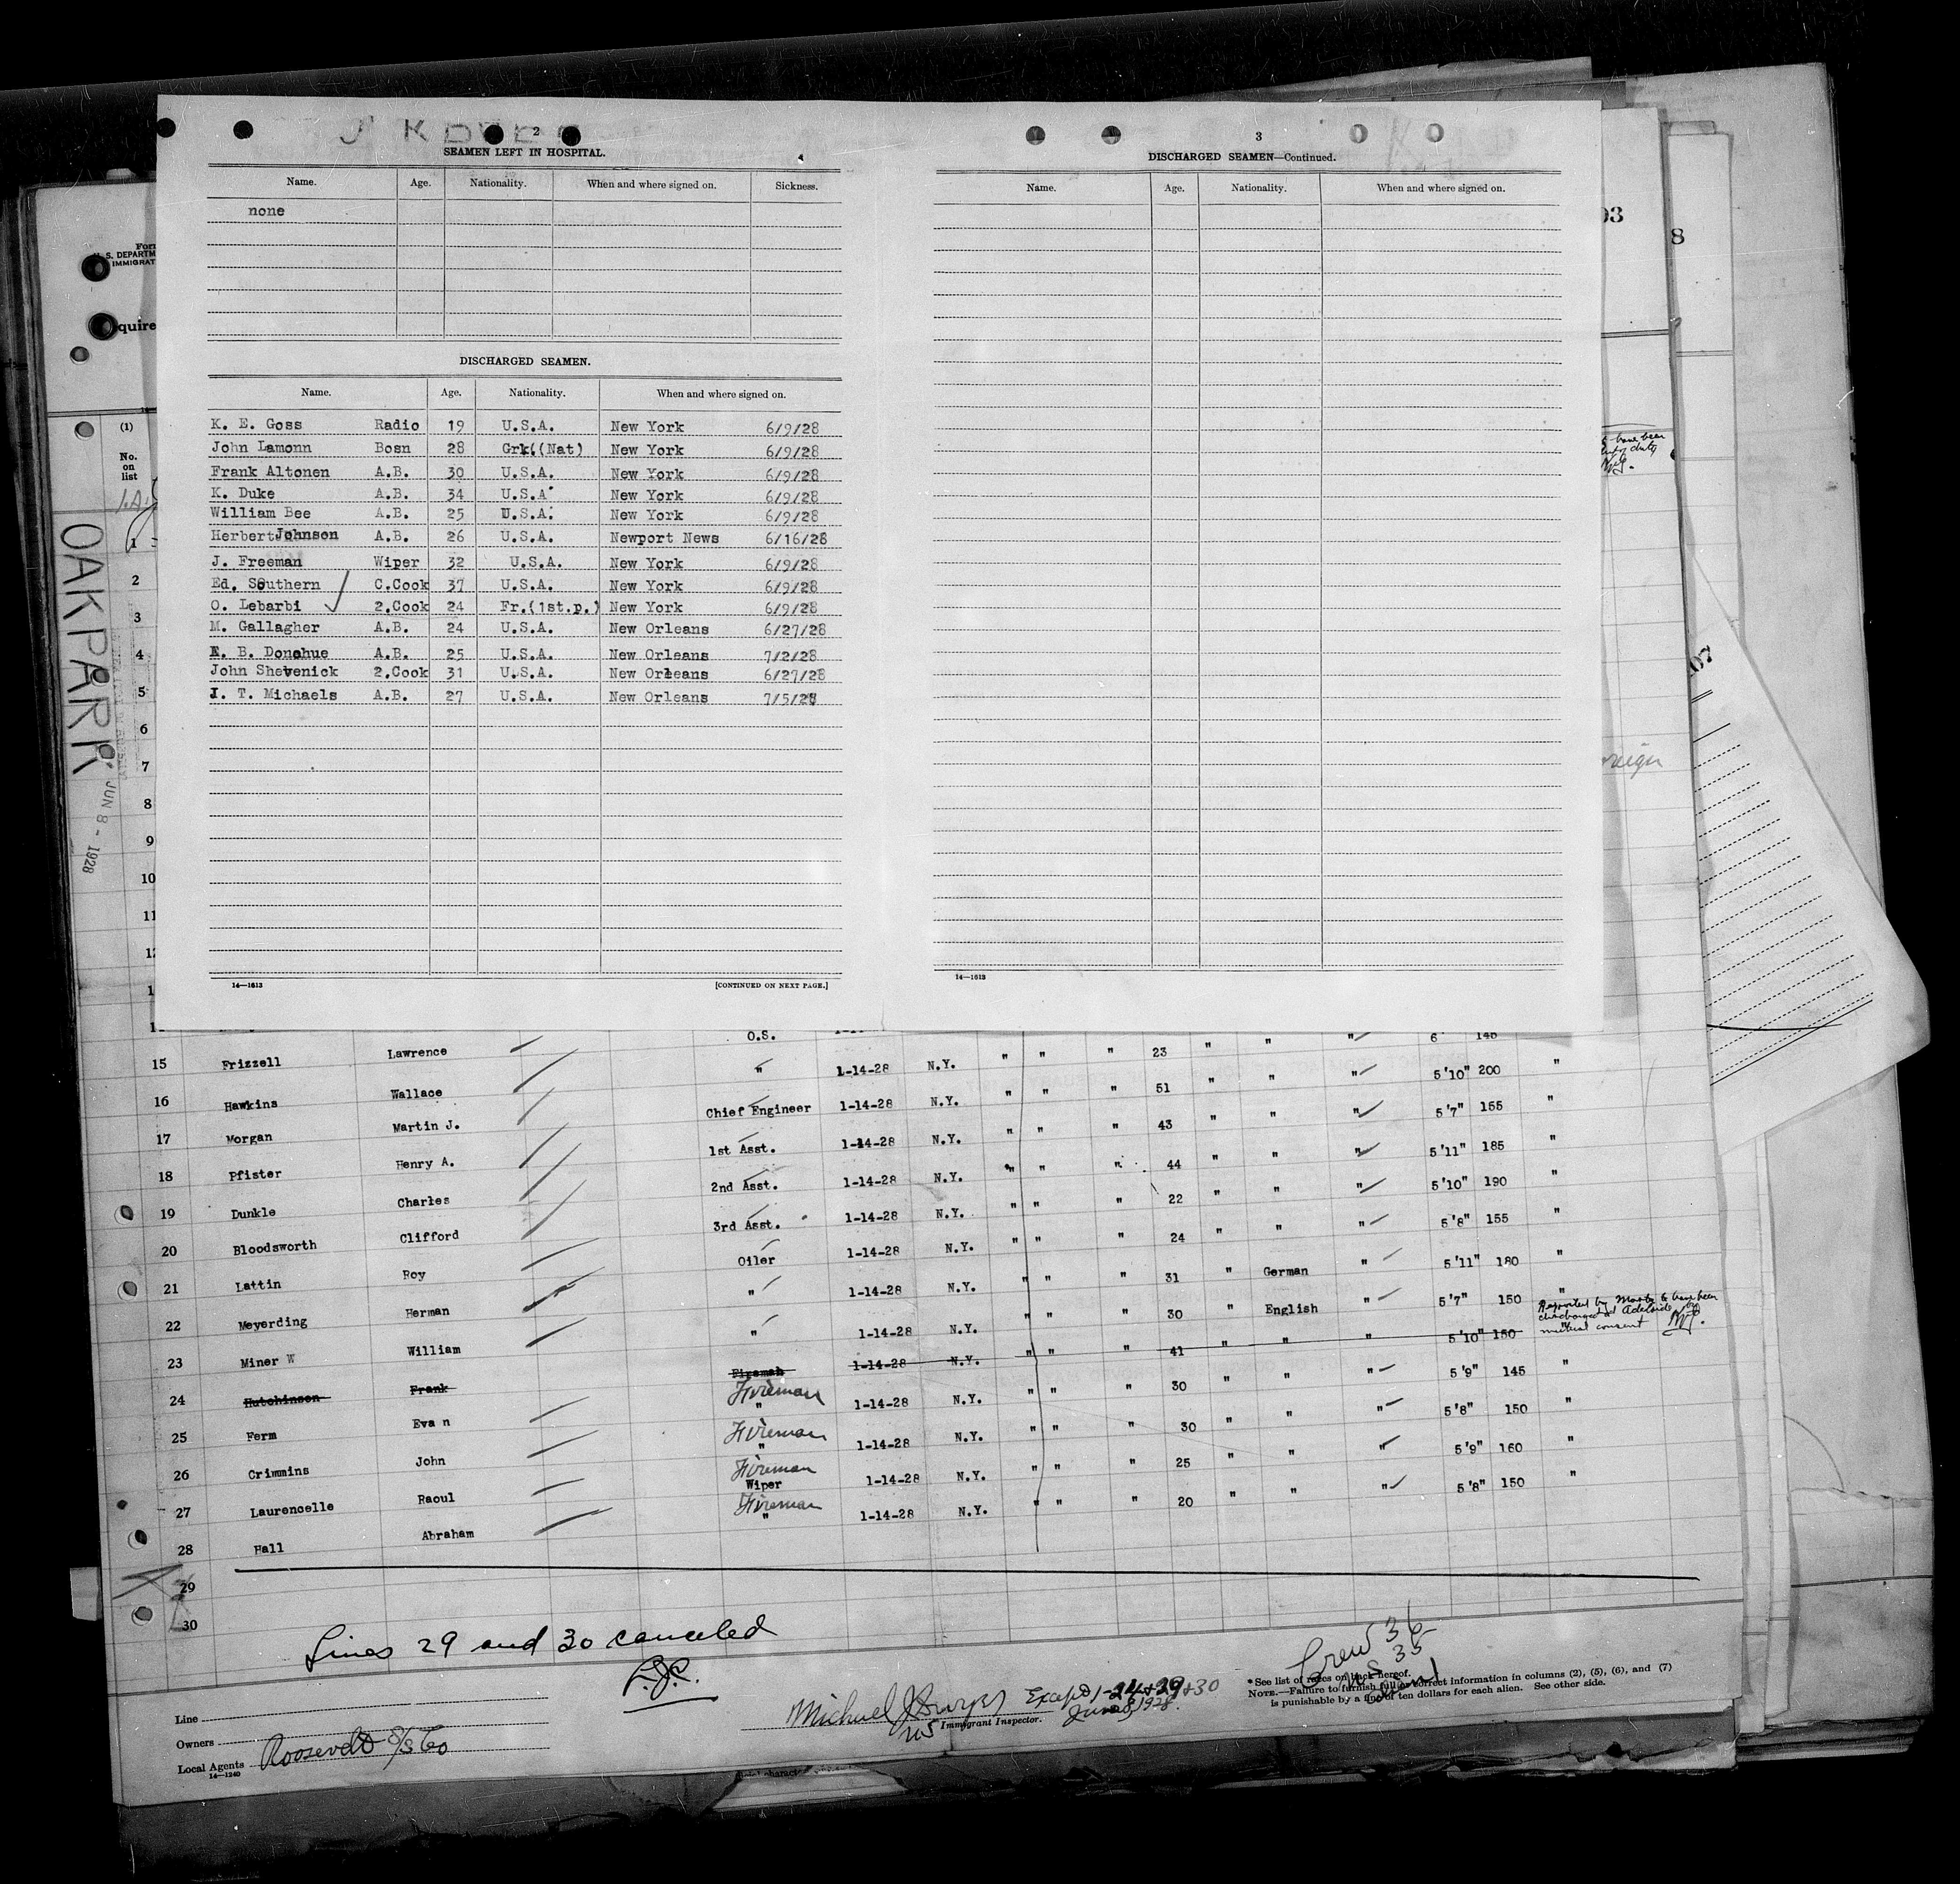 2
SEAMEN LEFT IN HOSPITAL.
Name. Age. Nationality. When and where signed on. Sickness.
none
DISCHARGED SEAMEN.
Name. Age. Nationality. When and where signed on.
K. E. Goss Radio 19 U.S.A. New York 6/9/28
John Lamonn Bosn 28 Grk.(Nat) New York 6/9/28
Frank Altonen A.B. 30 U.S.A. New York 6/9/28
K. Duke A.B. 34 U.S.A. New York 6/9/28
William Bee A.B. 25 U.S.A. New York 6/9/28
Herbert Johnson A.B. 26 U.S.A. Newport News 6/16/28
J. Freeman Wiper 32 U.S.A. New York 6/9/28
Ed. Southern C.Cook 37 U.S.A. New York 6/9/28
O. Lebarbi 2.Cook 24 Fr.(1st.p.) New York 6/9/28
M. Gallagher A.B. 24 U.S.A. New Orleans 6/27/28
B. Donohue A.B. 25 U.S.A. New Orleans 7/2/28
John Shevenick 2.Cook 31 U.S.A. New Orleans 6/27/28
I. T. Michaels A.B. 27 U.S.A. New Orleans 7/5/28
14—1613 [CONTINUED ON NEXT PAGE.]
3
DISCHARGED SEAMEN—Continued.
Name. Age. Nationality. When and where signed on.
14—1613
93
8
07
Form
U. S. DEPARTM
IMMIGRAT
quire
(1)
No.
on
list
OAKPARK
JUN 8 - 1928
1
2
3
4
5
6
7
8
9
10
11
12
O.S. 6 145
15 Frizzell Lawrence " 1-14-28 N.Y. " " " 23 " " " 5'10" 200 "
16 Hawkins Wallace Chief Engineer 1-14-28 N.Y. " " " 51 " " " 5'7" 155 "
17 Morgan Martin J. 1st Asst. 1-14-28 N.Y. " " " 43 " " " 5'11" 185 "
18 Pfister Henry A. 2nd Asst. 1-14-28 N.Y. " " " 44 " " " 5'10" 190 "
19 Dunkle Charles 3rd Asst. 1-14-28 N.Y. " " " 22 " " " 5'8" 155 "
20 Bloodsworth Clifford Oiler 1-14-28 N.Y. " " " 24 " " " 5'11" 180 "
21 Lattin Roy " 1-14-28 N.Y. " " " 31 " German " 5'7" 150 "
22 Meyerding Herman " 1-14-28 N.Y. " " " 30 " English " 5'10" 150 "
Reported by Master to have been
discharged at Adelaide by
mutual consent
23 Miner W William Fireman 1-14-28 N.Y. " " " 41 " " " 5'9" 145 "
24 Hutchinson Frank Fireman " 1-14-28 N.Y. " " " 30 " " " 5'8" 150 "
25 Ferm Evan Fireman " 1-14-28 N.Y. " " " 30 " " " 5'9" 160 "
26 Crimmins John Fireman Wiper 1-14-28 N.Y. " " " 25 " " " 5'8" 150 "
27 Laurencelle Raoul Fireman " 1-14-28 N.Y. " " " 20 " " "
28 Hall Abraham
29
30
Lines 29 and 30 canceled
Crew 36
Line
Owners
Local Agents Roosevelt S/S Co
14—1240
Michael J Except 1-24+29+30
US Immigrant Inspector. June 8, 1928.
* See list of races on back hereof.
NOTE.—Failure to furnish full or correct information in columns (2), (5), (6), and (7)
is punishable by a fine of ten dollars for each alien. See other side.